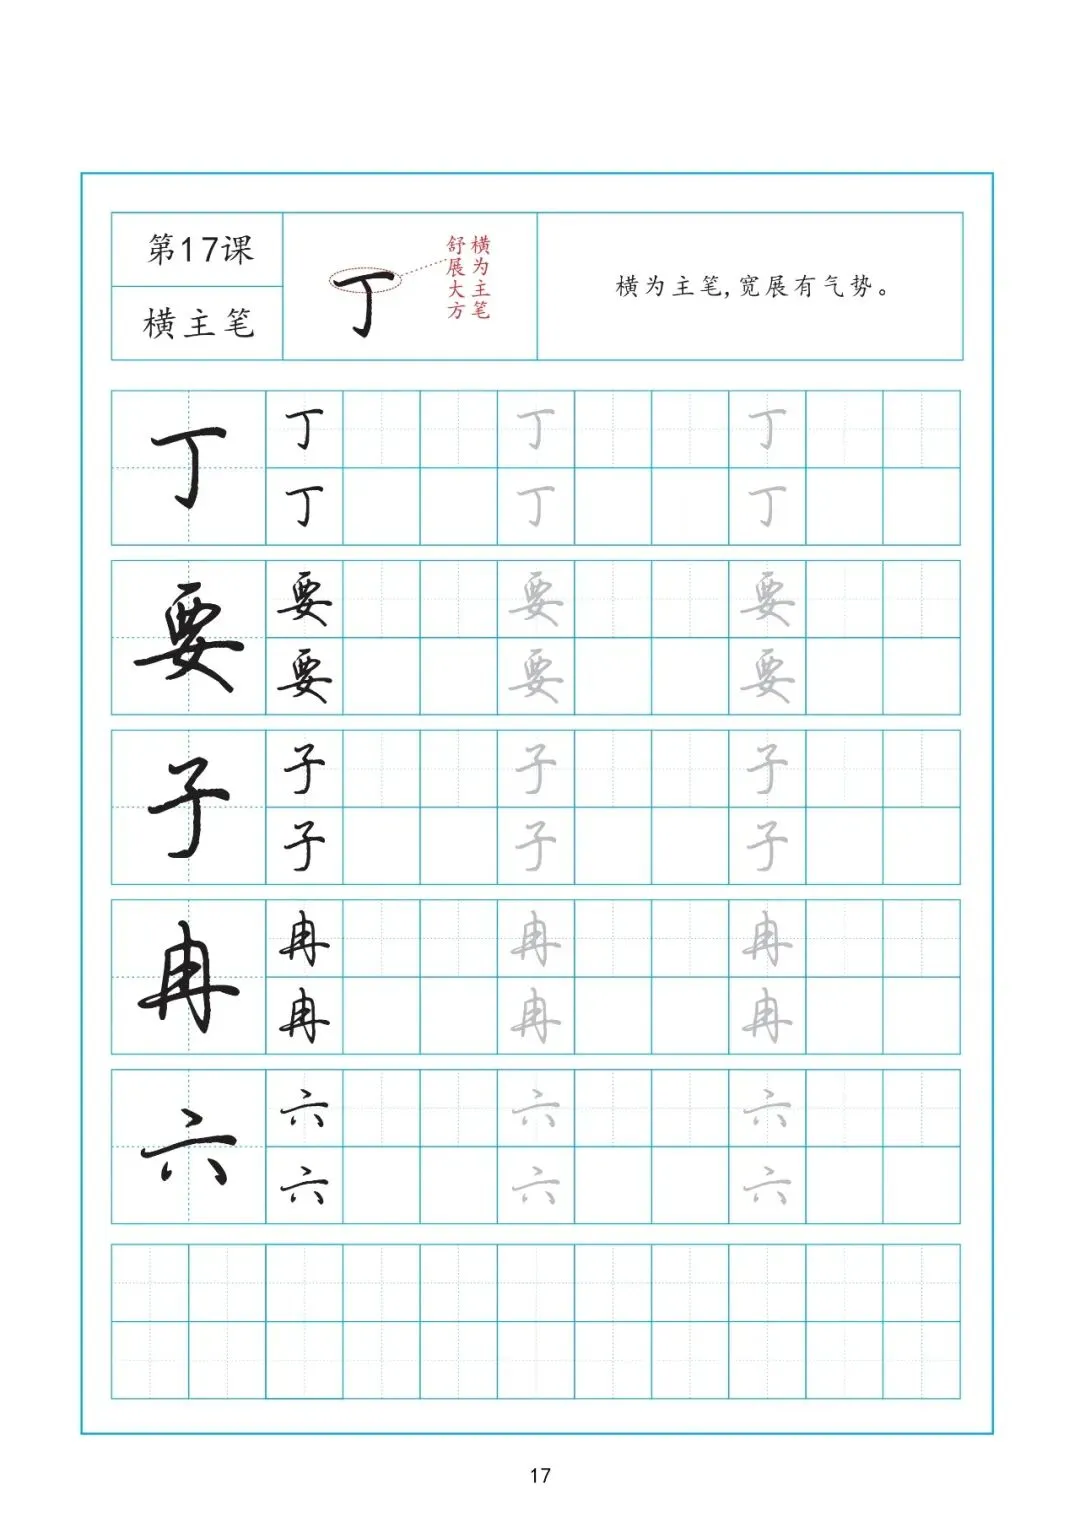 第17课
横主笔
丁
横为主笔
舒展大方
横为主笔,宽展有气势。
丁 丁 丁 丁
丁 丁 丁
要 要 要 要
要 要 要
子 子 子 子
子 子 子
冉 冉 冉 冉
冉 冉 冉
六 六 六 六
六 六 六
17